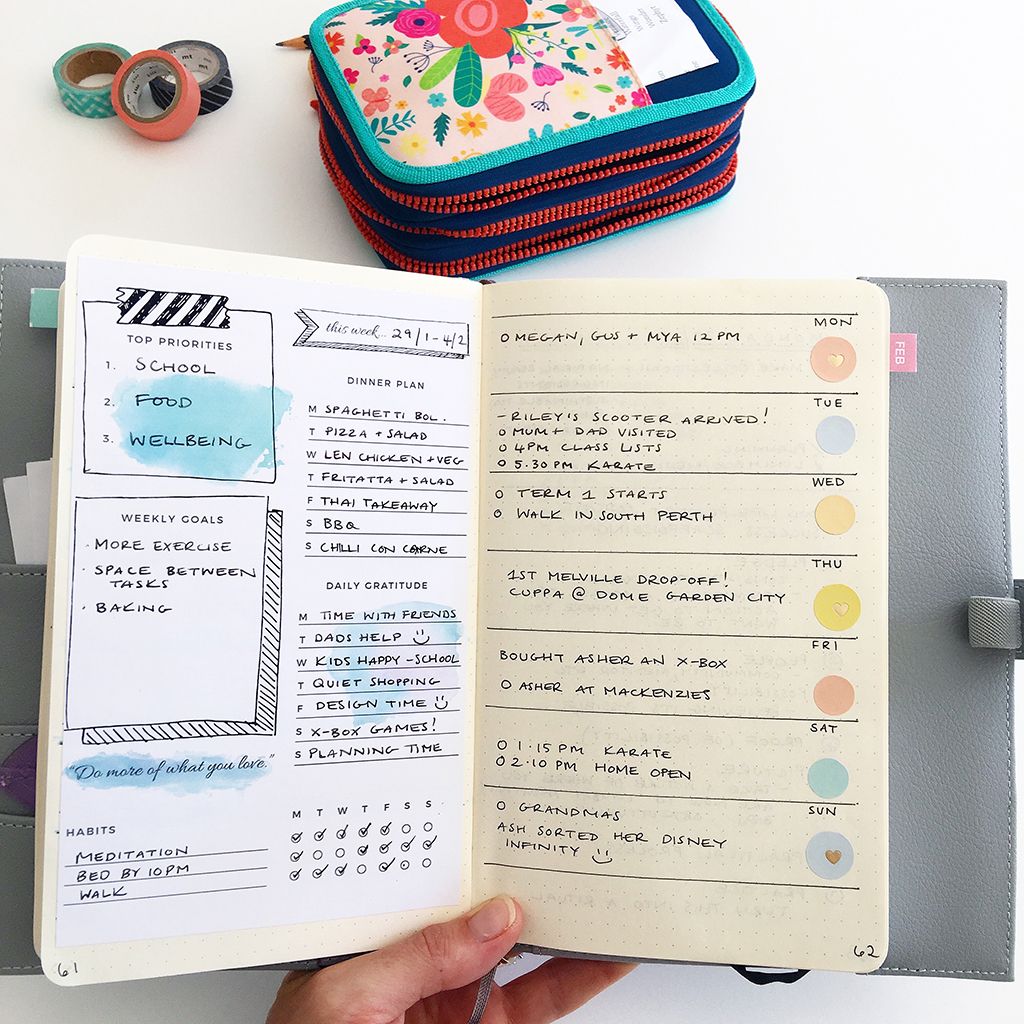 TOP PRIORITIES
1. SCHOOL
2. FOOD
3. WELLBEING
WEEKLY GOALS
· MORE EXERCISE
· SPACE BETWEEN
TASKS
· BAKING
"Do more of what you love."
HABITS
MEDITATION
BED BY 10PM
WALK
61
this week... 29/1-4/2
DINNER PLAN
M SPAGHETTI BOL.
T PIZZA + SALAD
W LEN CHICKEN + VEG
T FRITATTA + SALAD
F THAI TAKEAWAY
S BBQ
S CHILLI CON CARNE
DAILY GRATITUDE
M TIME WITH FRIENDS
T DADS HELP
W KIDS HAPPY - SCHOOL
T QUIET SHOPPING
F DESIGN TIME
S X-BOX GAMES!
S PLANNING TIME
M T W T F S S
MON
O MEGAN, GUS + MYA 12 PM
TUE
- RILEY'S SCOOTER ARRIVED!
O MUM + DAD VISITED
O 4PM CLASS LISTS
O 5.30 PM KARATE
WED
O TERM 1 STARTS
O WALK IN SOUTH PERTH
THU
1ST MELVILLE DROP-OFF!
CUPPA @ DOME GARDEN CITY
FRI
BOUGHT ASHER AN X-BOX
O ASHER AT MACKENZIES
SAT
O 1:15 PM KARATE
O 2.10 PM HOME OPEN
SUN
O GRANDMAS
ASH SORTED HER DISNEY
INFINITY
62
FEB
mt